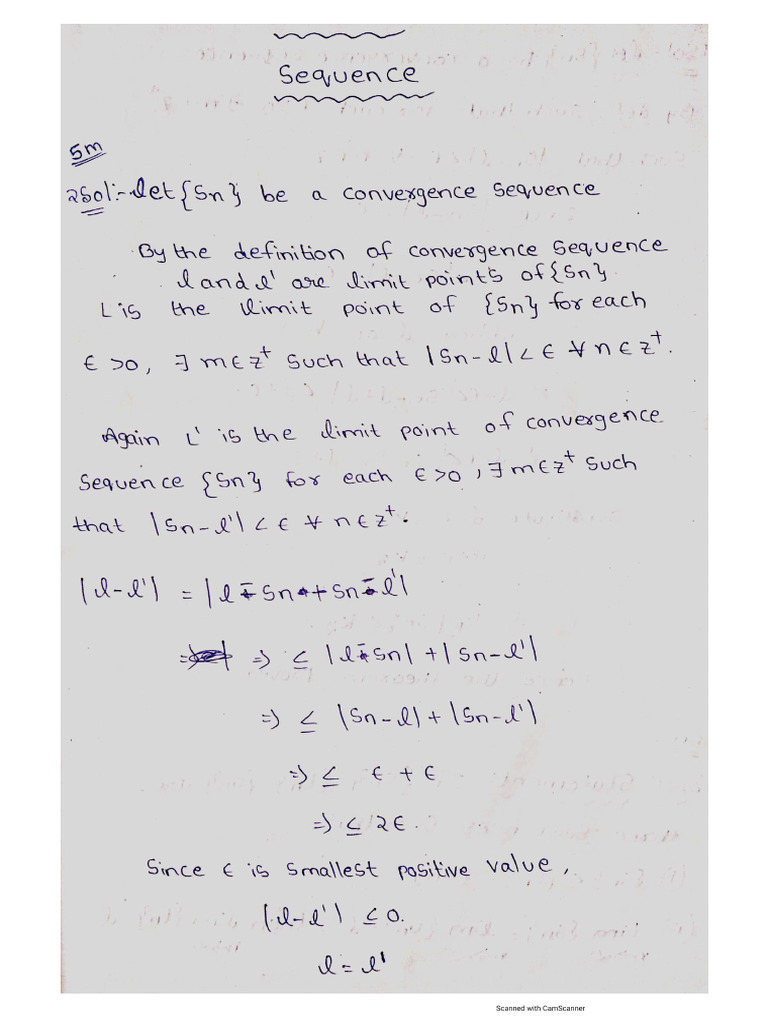 Sequence
5m
2Sol:- let {Sn} be a convergence sequence
By the definition of convergence sequence
l and l' are limit points of {Sn}
L is the limit point of {Sn} for each
ϵ >0, ∃ m ϵ z⁺ such that |Sn-l| < ϵ ∀ n ϵ z⁺.
Again L' is the limit point of convergence
sequence {Sn} for each ϵ >0, ∃ m ϵ z⁺ such
that |Sn-l'| < ϵ ∀ n ϵ z⁺.
|l-l'| = |l - Sn + Sn - l'|
=> ≤ |l - Sn| + |Sn-l'|
=> ≤ |Sn-l| + |Sn-l'|
=> ≤ ϵ + ϵ
=> ≤ 2ϵ.
Since ϵ is smallest positive value,
|l-l'| ≤ 0.
l = l'
Scanned with CamScanner